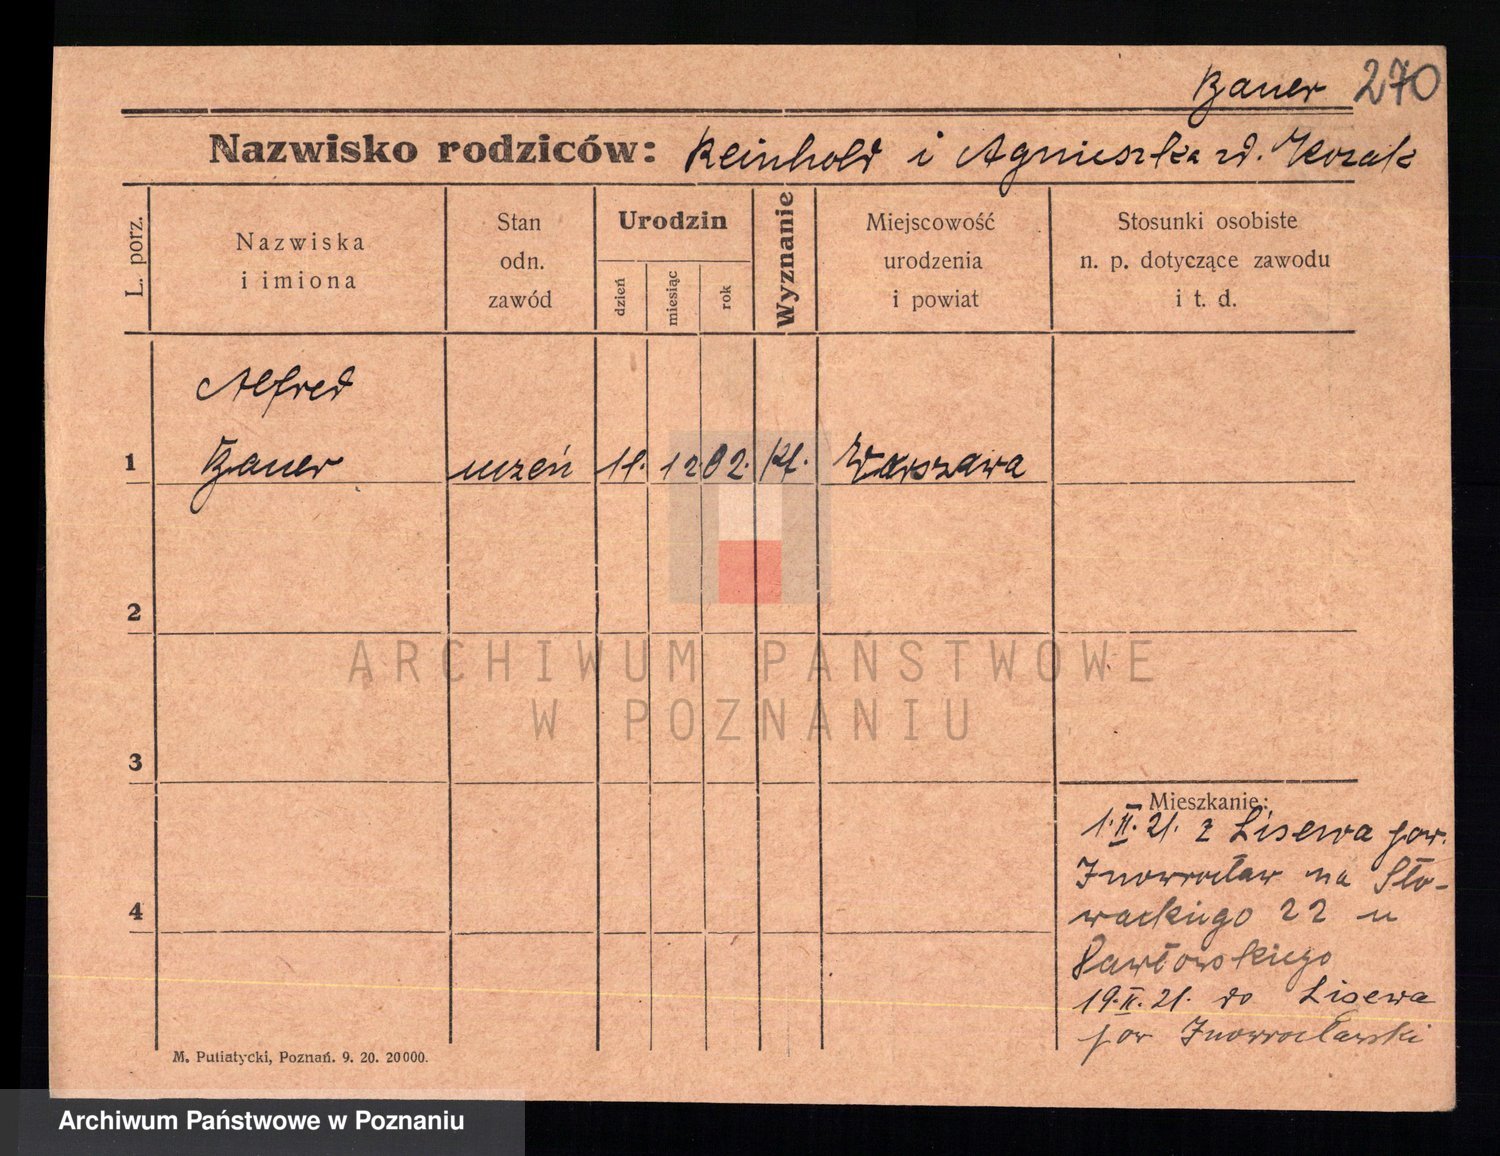 Bauer 270
Nazwisko rodziców: Reinhold i Agnieszka zd. Kozak
L. porz.
Nazwiska
i imiona
Stan
odn.
zawód
Urodzin
dzień
miesiąc
rok
Wyznanie
Miejscowość
urodzenia
i powiat
Stosunki osobiste
n. p. dotyczące zawodu
i t. d.
Alfred
1 Bauer uczeń 11. 12 02. Kf. Warszawa
2
ARCHIWUM PAŃSTWOWE
W POZNANIU
3
Mieszkanie:
1.II.21. z Lisewa pow.
4 Inowrocław na Sło-
wackiego 22 u
Pawłowskiego
19.II.21. do Lisewa
pow Inowrocławski
M. Putiatycki, Poznań. 9. 20. 20000.
Archiwum Państwowe w Poznaniu